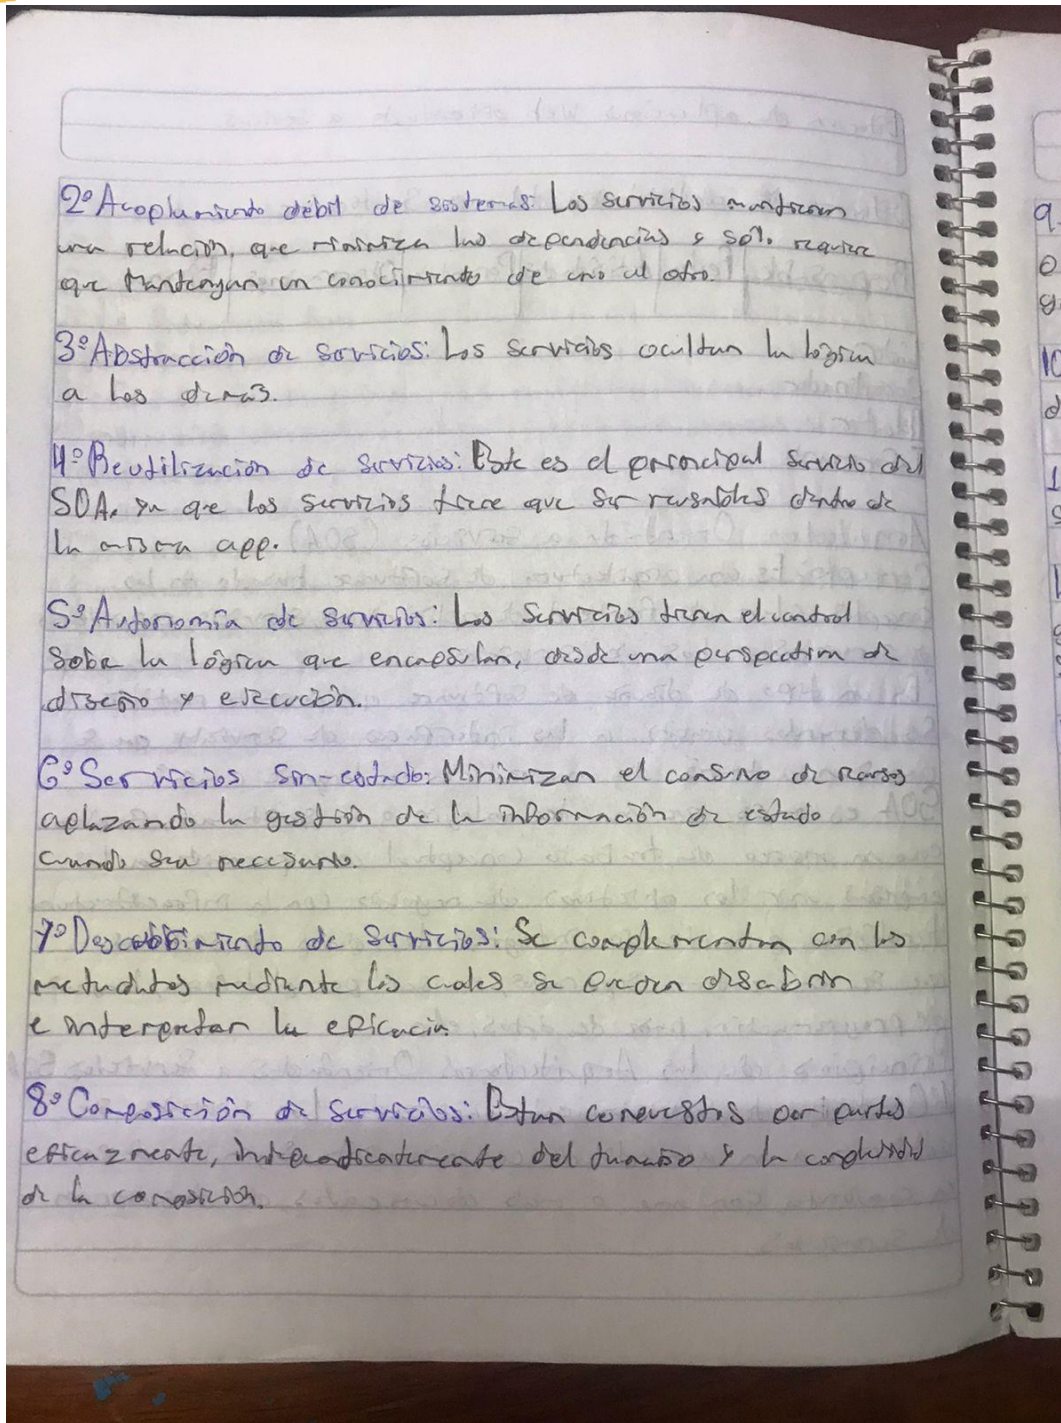 2º Acoplamiento débil de sistemas: Los servicios mantienen
una relación, que minimiza las dependencias y sólo requiere
que mantengan un conocimiento de uno al otro.
3º Abstracción de servicios: Los servicios ocultan la lógica
a los demás.
4º Reutilización de servicios: Este es el principal servicio del
SOA, ya que los servicios tiene que ser reusables dentro de
la misma app.
5º Autonomía de servicios: Los servicios tienen el control
sobe la lógica que encapsulan, desde una perspectiva de
diseño y ejecución.
6º Servicios sin-estado: Minimizan el consumo de recursos
aplazando la gestión de la información de estado
cuando sea necesario.
7º Descubrimiento de servicios: Se complementan con los
metadatos mediante los cuales se pueden descubrir
e interpretar la eficacia.
8º Composición de servicios: Estan compuestos por partes
eficazmente, independientemente del tamaño y la complejidad
de la composición.
9
10